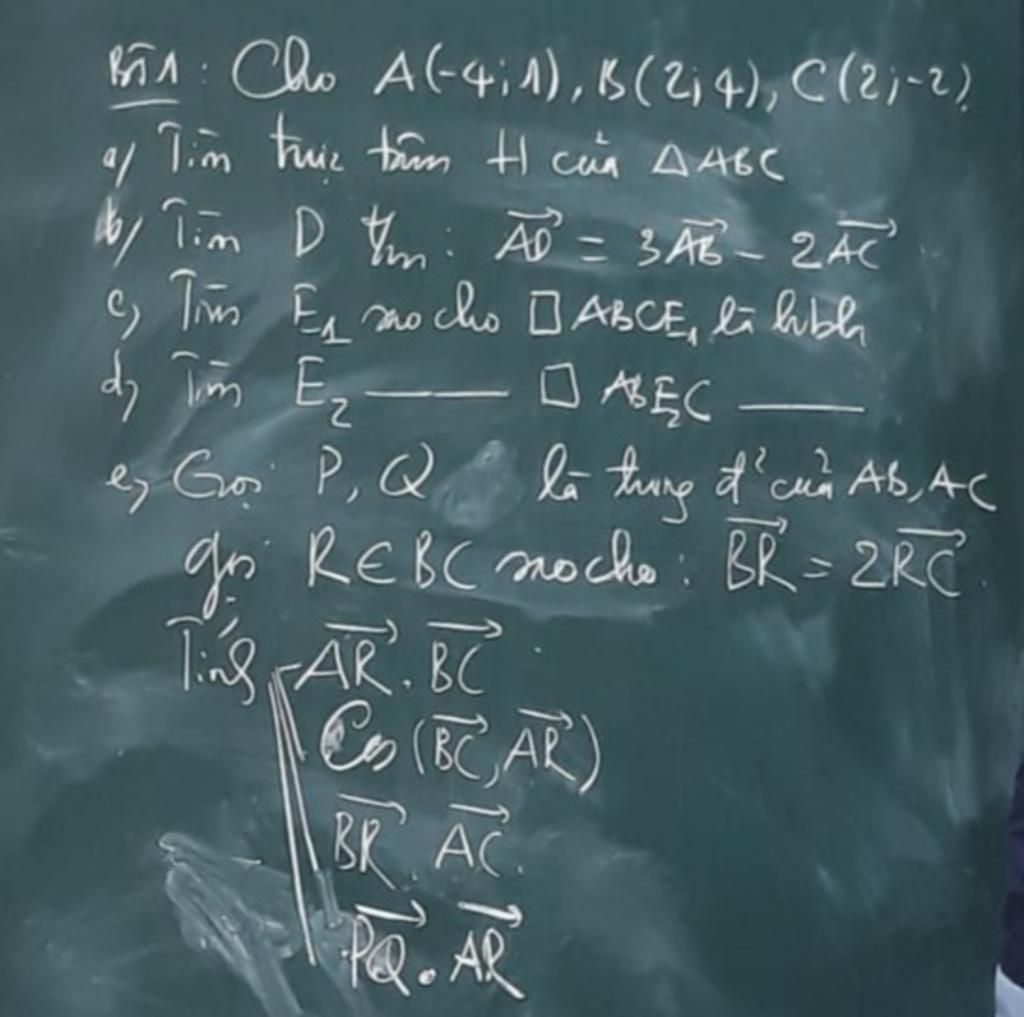 Bài 1: Cho A(-4;1), B(2;4), C(2;-2)
a/ Tìm trực tâm H của △ABC
b/ Tìm D t/m: $\overrightarrow{AD}$ = 3$\overrightarrow{AB}$ - 2$\overrightarrow{AC}$
c, Tìm E₁ sao cho □ABCE₁ là hbh
d, Tìm E₂ ——— □ ABE₂C ———
e, Gọi P, Q là trung đ' của AB, AC
gọi R∈BC sao cho: $\overrightarrow{BR}$ = 2$\overrightarrow{RC}$.
Tính $\overrightarrow{AR}$.$\overrightarrow{BC}$
Cos($\overrightarrow{BC}$,$\overrightarrow{AR}$)
$\overrightarrow{BR}$.$\overrightarrow{AC}$.
$\overrightarrow{PQ}$.$\overrightarrow{AR}$